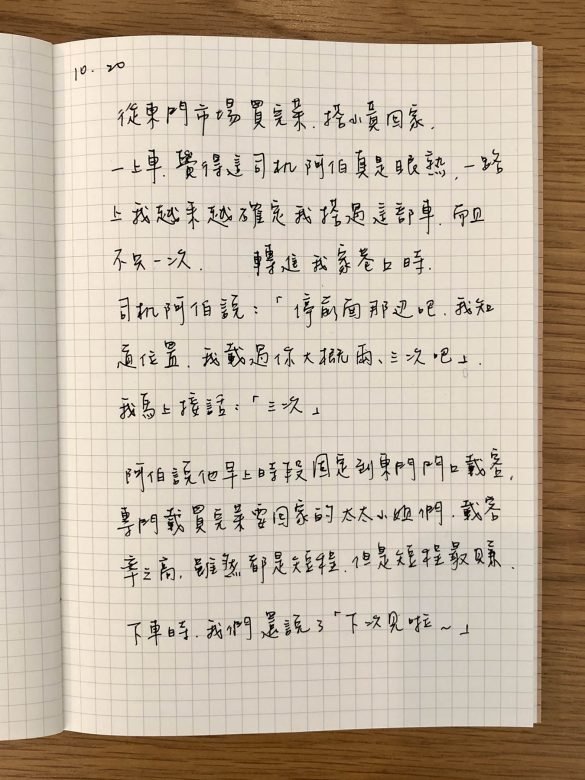 10.20
從東門市場買完菜,搭小黃回家,
一上車,覺得這司机阿伯真是眼熟,一路
上我越乘越確定我搭過這部車,而且
不只一次. 轉進我家巷口時,
司机阿伯說:「停前面那边吧,我知
道位置,我載過你大概兩、三次吧」.
我馬上接話:「三次」
阿伯說他早上時段固定到東門門口載客,
專門載買完菜要回家的太太小姐們,載客
率之高,雖然都是短程,但是短程最賺.
下車時,我們還說了「下次見啦~」